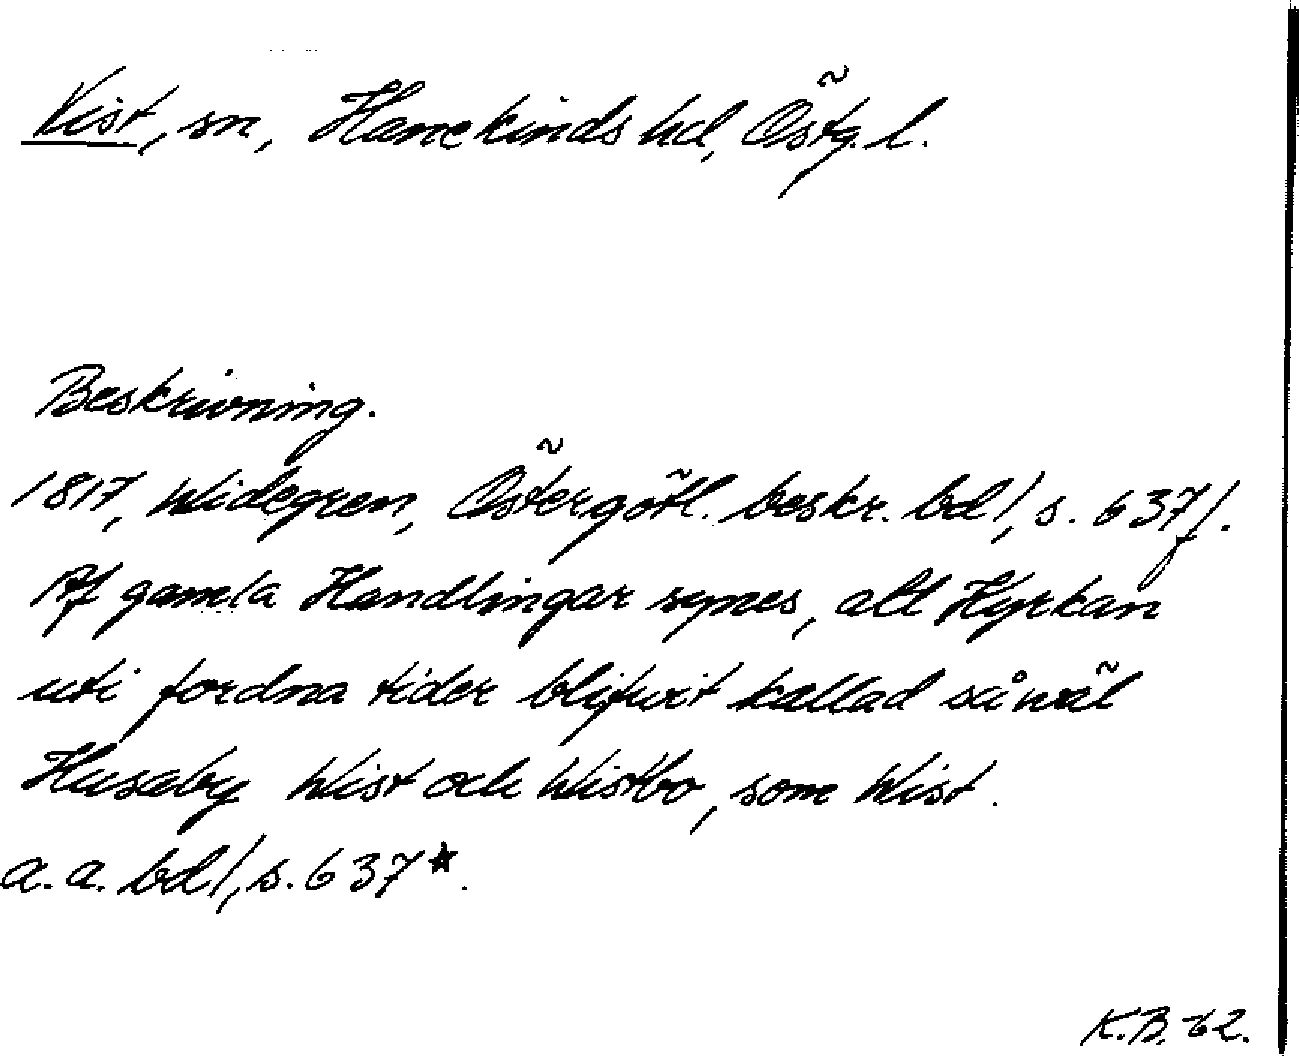 Vist, sn, Hanekinds hd, Östg. l.
Beskrivning.
1817, Widegren, Östergötl. beskr. bd 1, s. 637 f.
Af gamla Handlingar synes, att Kyrkan
uti fordna tider blifwit kallad såwäl
Huseby Wist och Wistbo, som Wist.
a. a. bd 1, s. 637*.
K.B. -62.